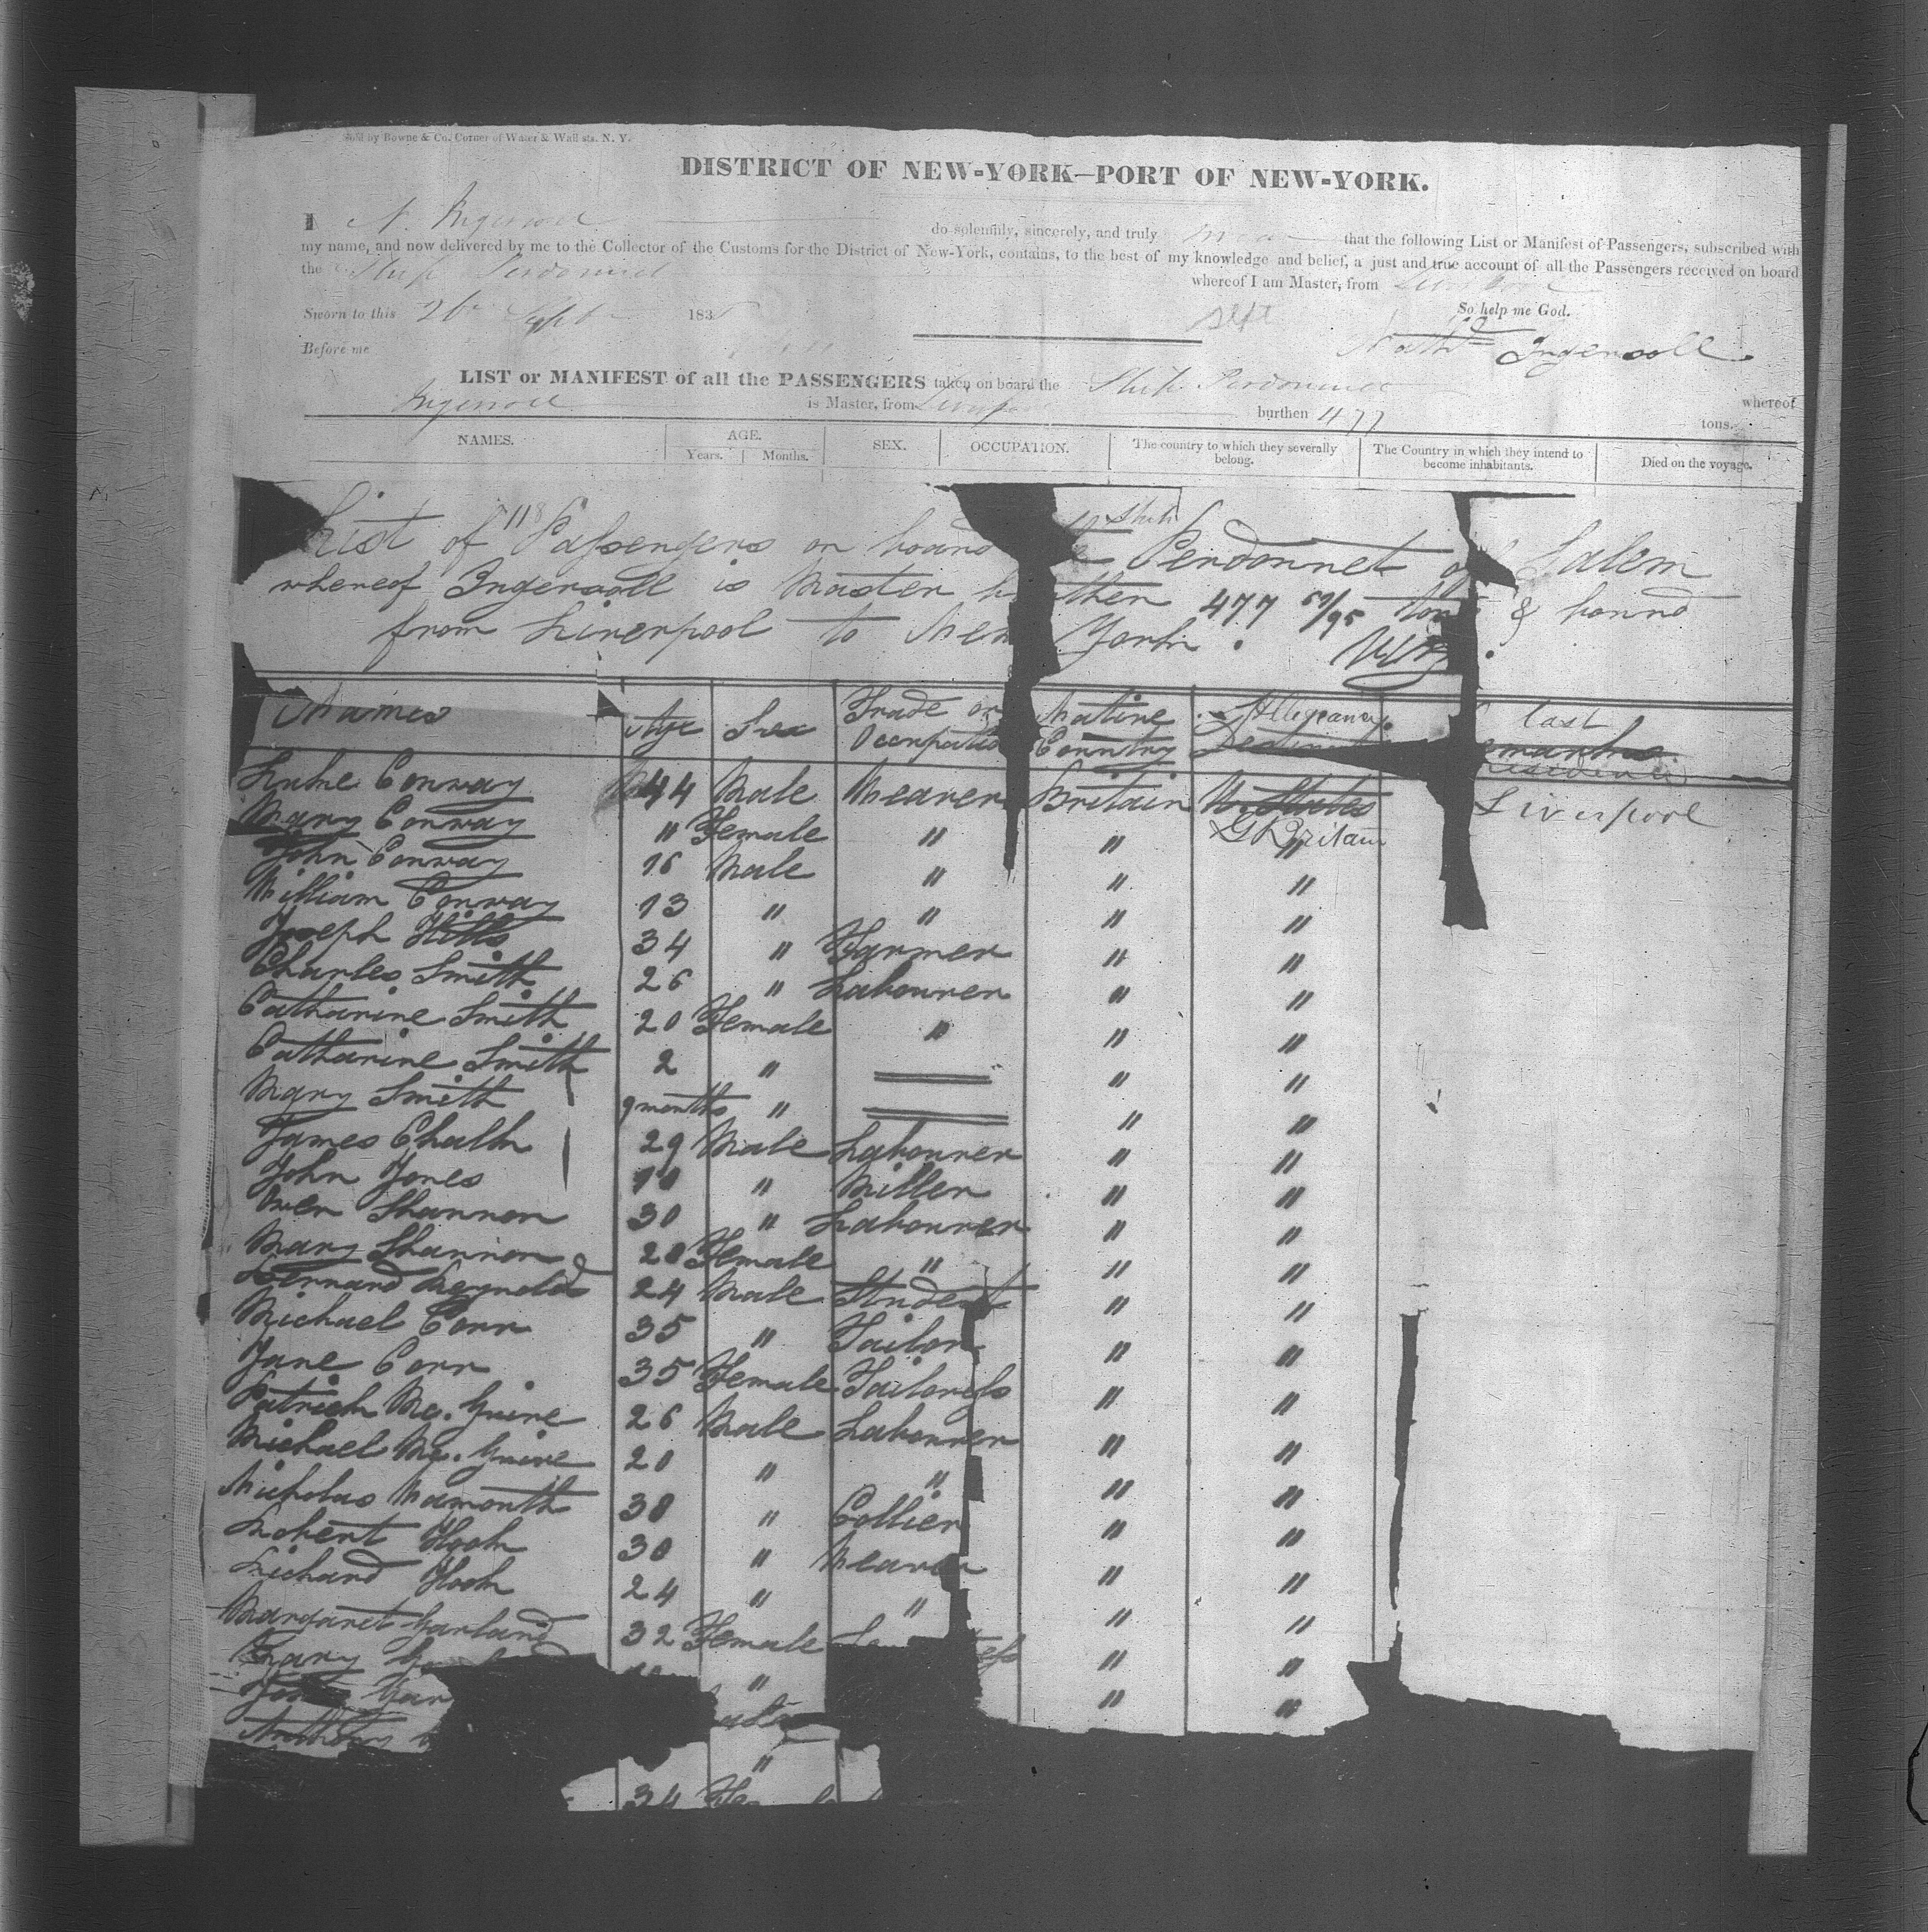 Sold by Bowne & Co. Corner of Water & Wall sts. N. Y.
DISTRICT OF NEW-YORK—PORT OF NEW-YORK.
I N. Ingersoll do solemnly, sincerely, and truly swear that the following List or Manifest of Passengers, subscribed with
my name, and now delivered by me to the Collector of the Customs for the District of New-York, contains, to the best of my knowledge and belief, a just and true account of all the Passengers received on board
the Ship Perdonnet whereof I am Master, from Liverpool
So help me God.
Sworn to this 26 Septbr 183 Sept
Before me Nathl Ingersoll
LIST or MANIFEST of all the PASSENGERS taken on board the Ship Perdonnet whereof
Ingersoll is Master, from Liverpool burthen 477 tons.
NAMES. AGE. Years. Months. SEX. OCCUPATION. The country to which they severally belong. The Country in which they intend to become inhabitants. Died on the voyage.
List of "118" Passengers on board Ship Perdonnet of Salem
whereof Ingersoll is Master burthen 477 /95 tons & bound
from Liverpool to New York.
Names Age Sex Trade or Occupation Native Country Allegiancy last residence
Luke Conway 44 Male Weaver Britain U. States Liverpool
Mary Conway " Female " " G Britain "
John Conway 16 Male " " "
William Conway 13 " " " "
Joseph Hills 34 " Farmer " "
Charles Smith 26 " Labourer " "
Catharine Smith 20 Female " " "
Catharine Smith 2 " " "
Mary Smith 9 months " " "
James Chalk 29 Male Labourer " "
John Jones " Miller " "
Owen Shannon 30 " Labourer " "
Mary Shannon 20 Female " " "
Bernard Reynolds 24 Male Student " "
Michael Corr 35 " Tailor " "
Jane Corr 35 Female Tailoress " "
Patrick Mc. Guire 26 Male Labourer " "
Michael Mc. Guire 20 " " " "
Nicholas 30 " Collier " "
Robert Hook 30 " Weaver " "
Richard Hook 24 " " " "
Margaret Garland 32 Female " "
Mary " " "
Gar
"
34